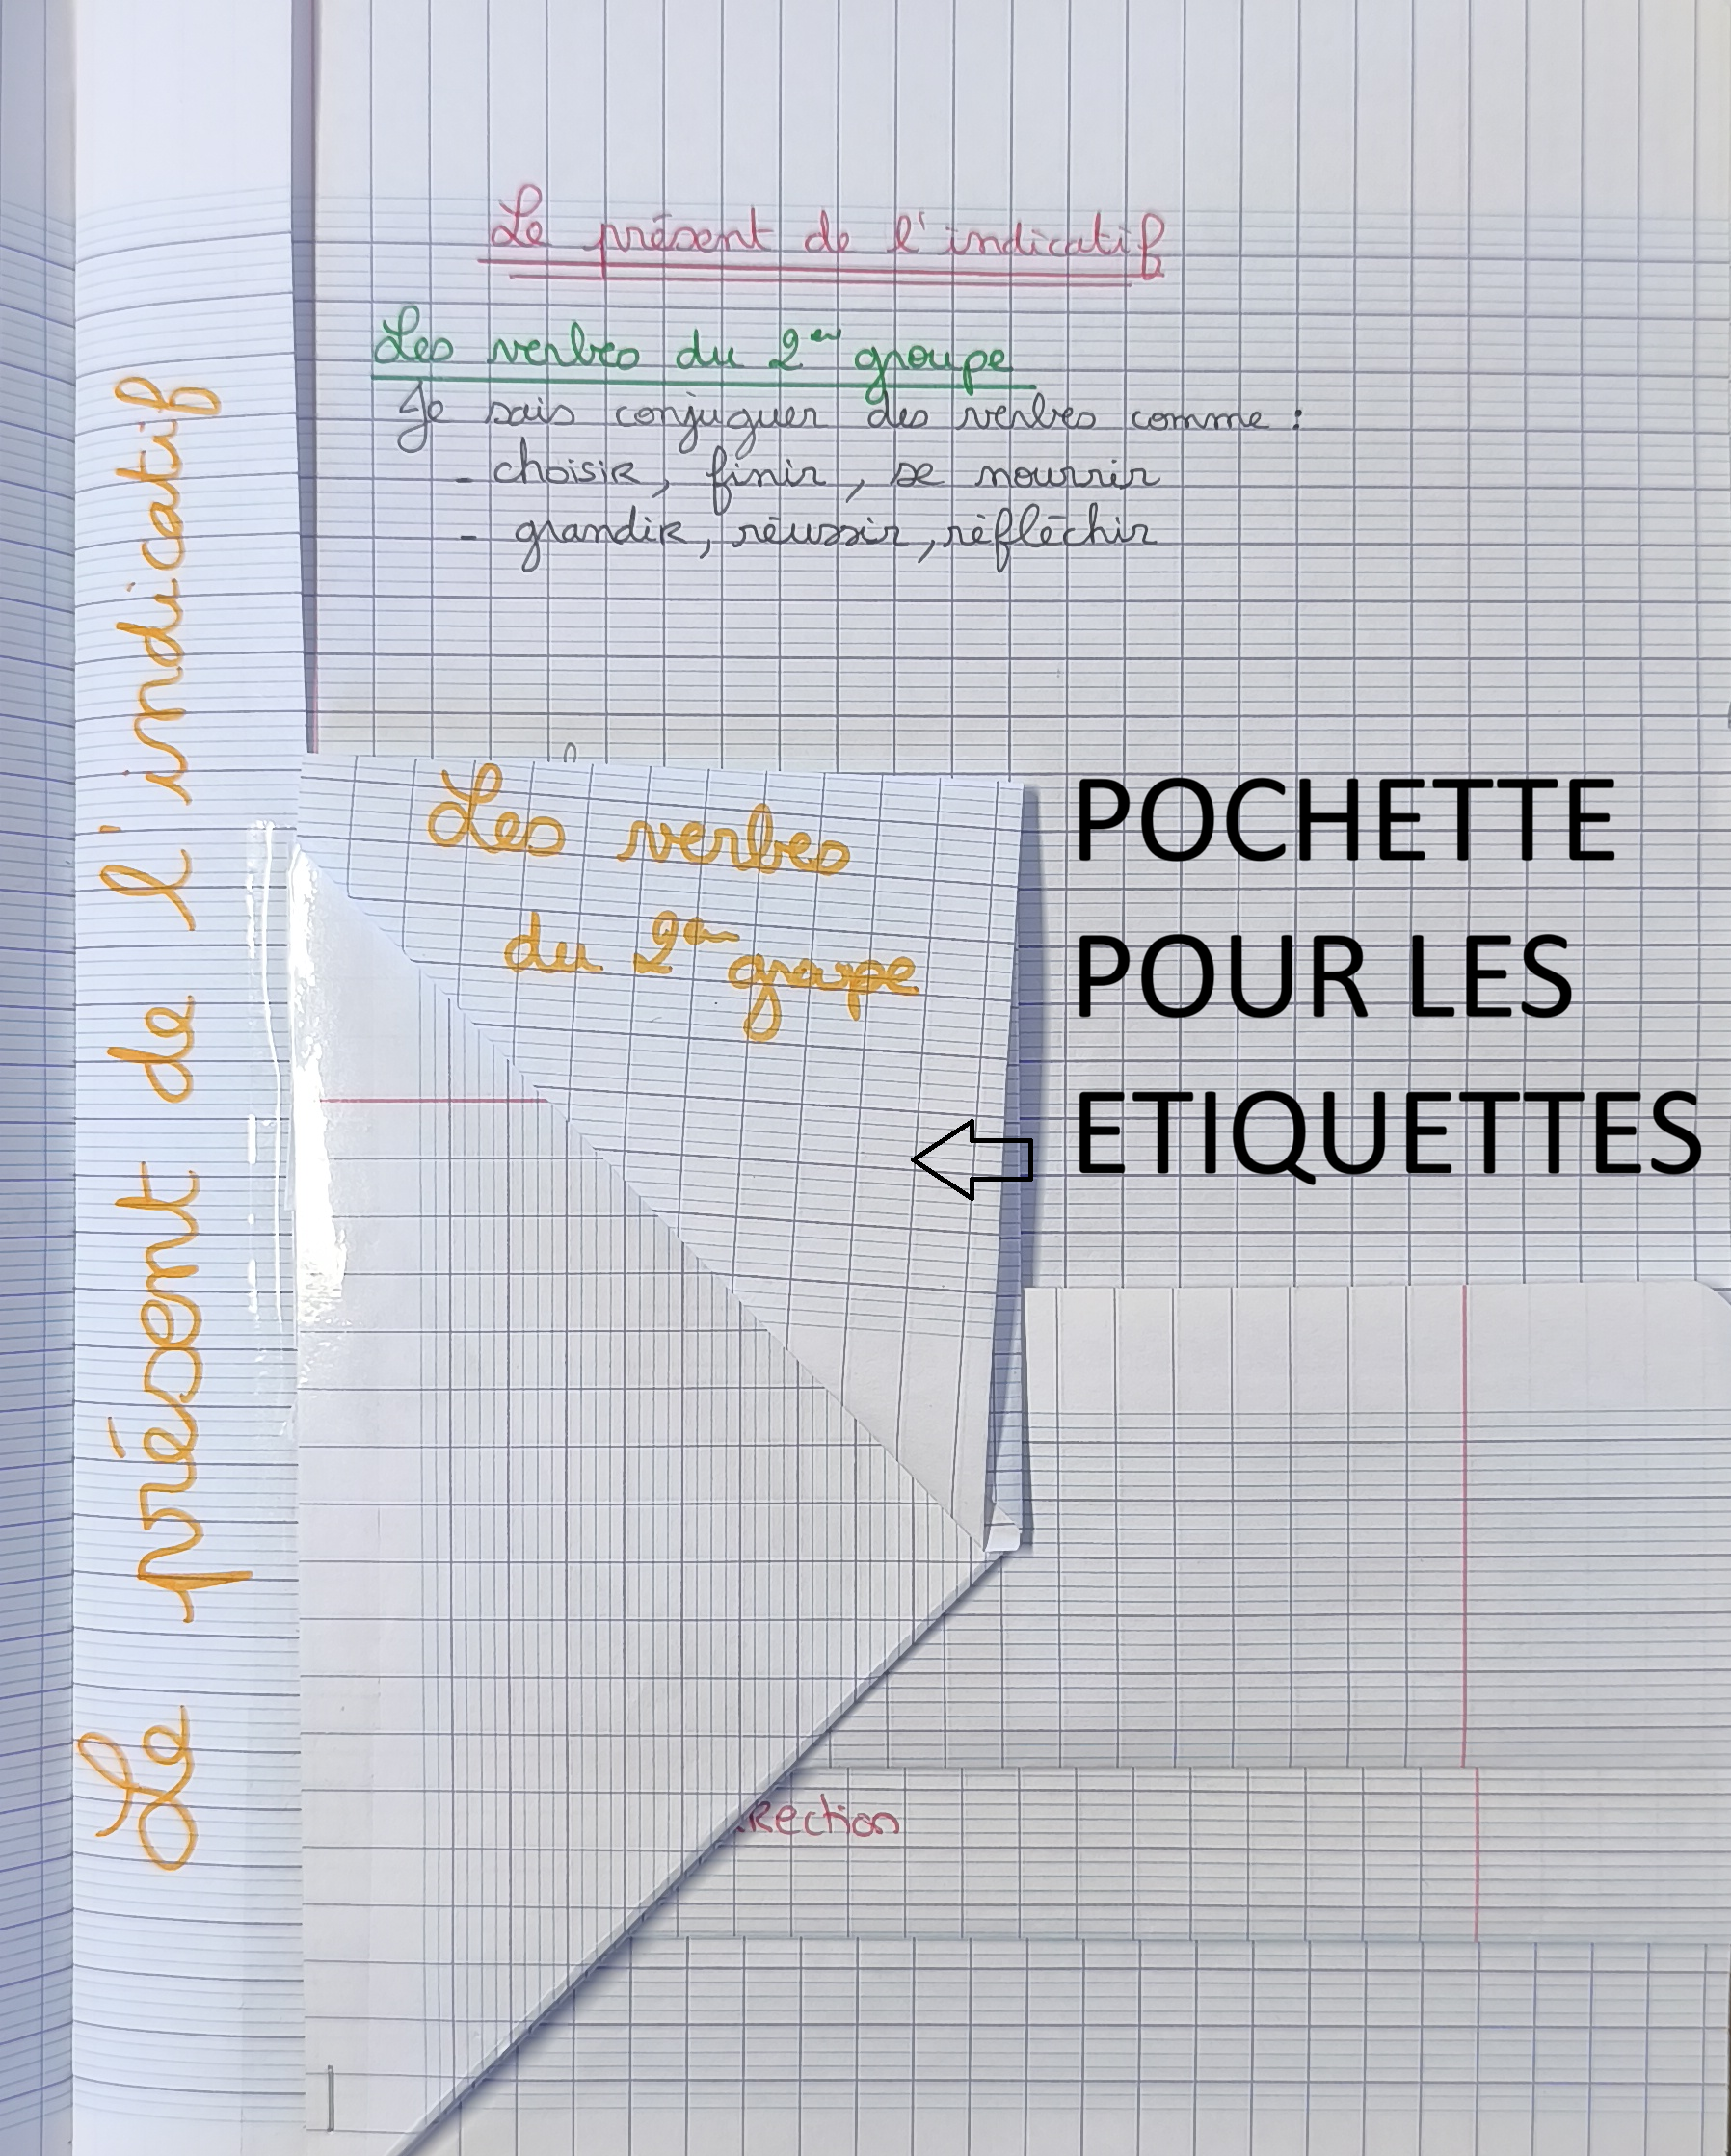 Le présent de l'indicatif
Le présent de l'indicatif
Les verbes du 2em groupe
Je sais conjuguer des verbes comme :
- choisir, finir, se nourrir
- grandir, réussir, réfléchir
Les verbes
du 2em groupe
POCHETTE
POUR LES
ETIQUETTES
rection